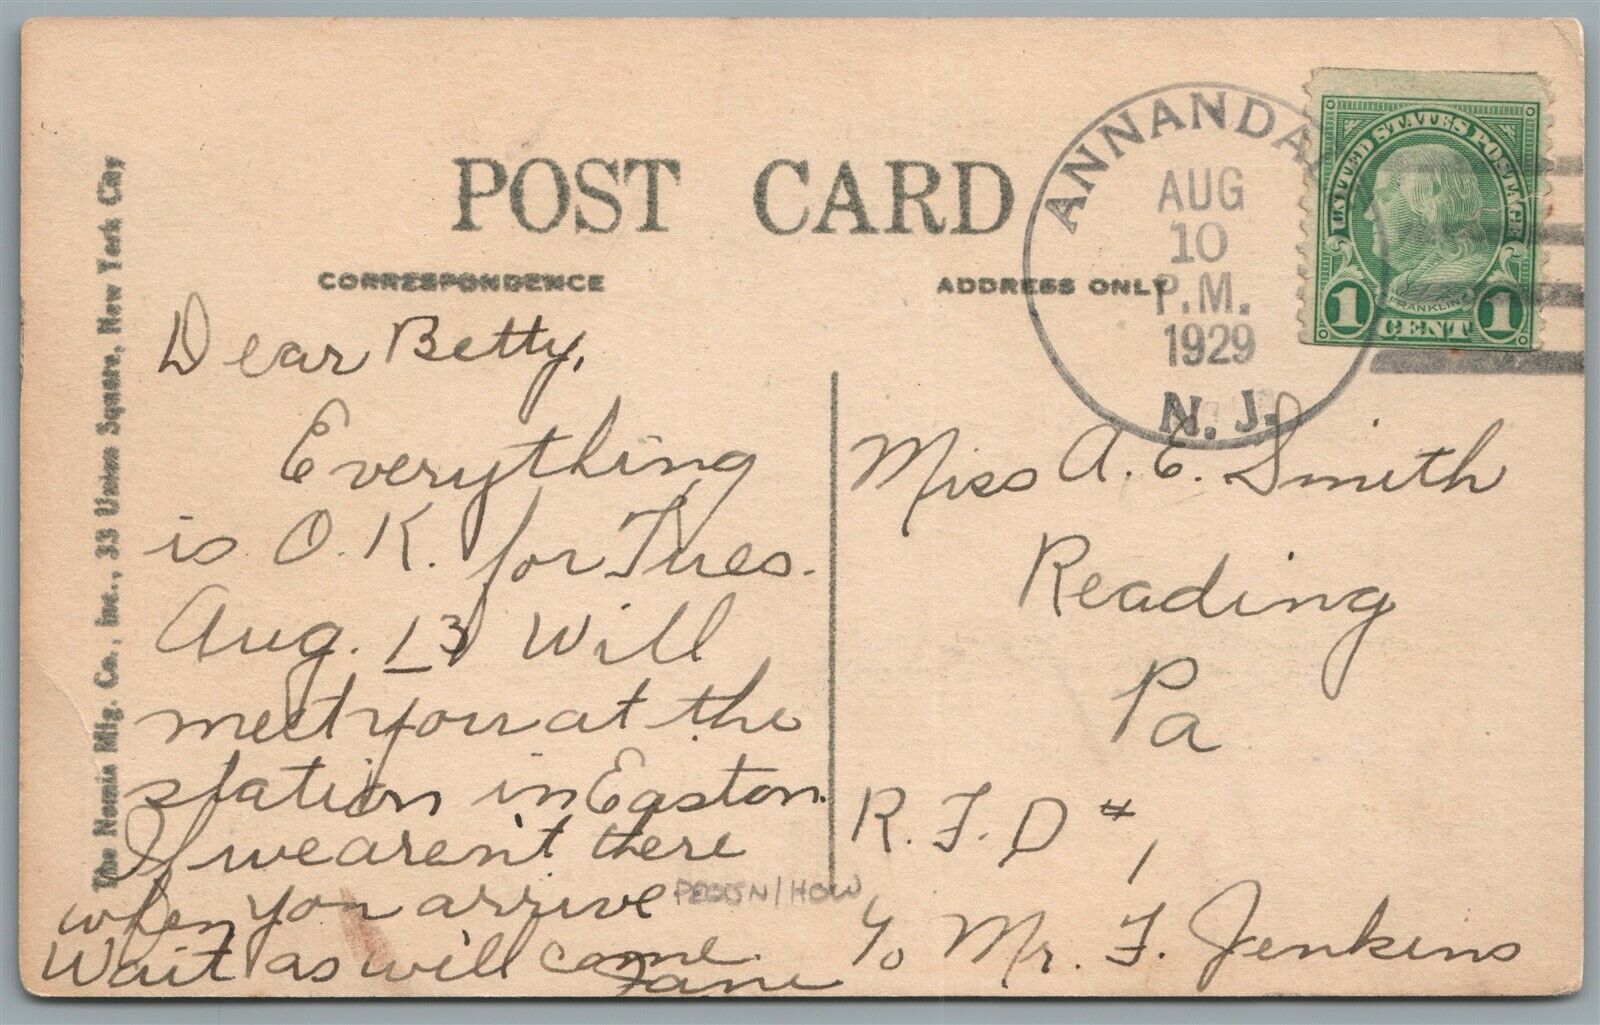 POST CARD
CORRESPONDENCE
ADDRESS ONLY
The Nomis Mfg. Co., Inc., 33 Union Square, New York City
ANNANDA
AUG
10
P.M.
1929
N. J.
UNITED STATES POSTAGE
FRANKLIN
1 CENT 1
Dear Betty,
Everything
is O.K. for Tues.
Aug. 13 Will
meet you at the
station in Easton.
If we aren't there
when you arrive
Wait as will come.
Jane
Miss A. E. Smith
Reading
Pa
R. F. D # 1
℅ Mr. F. Jenkins